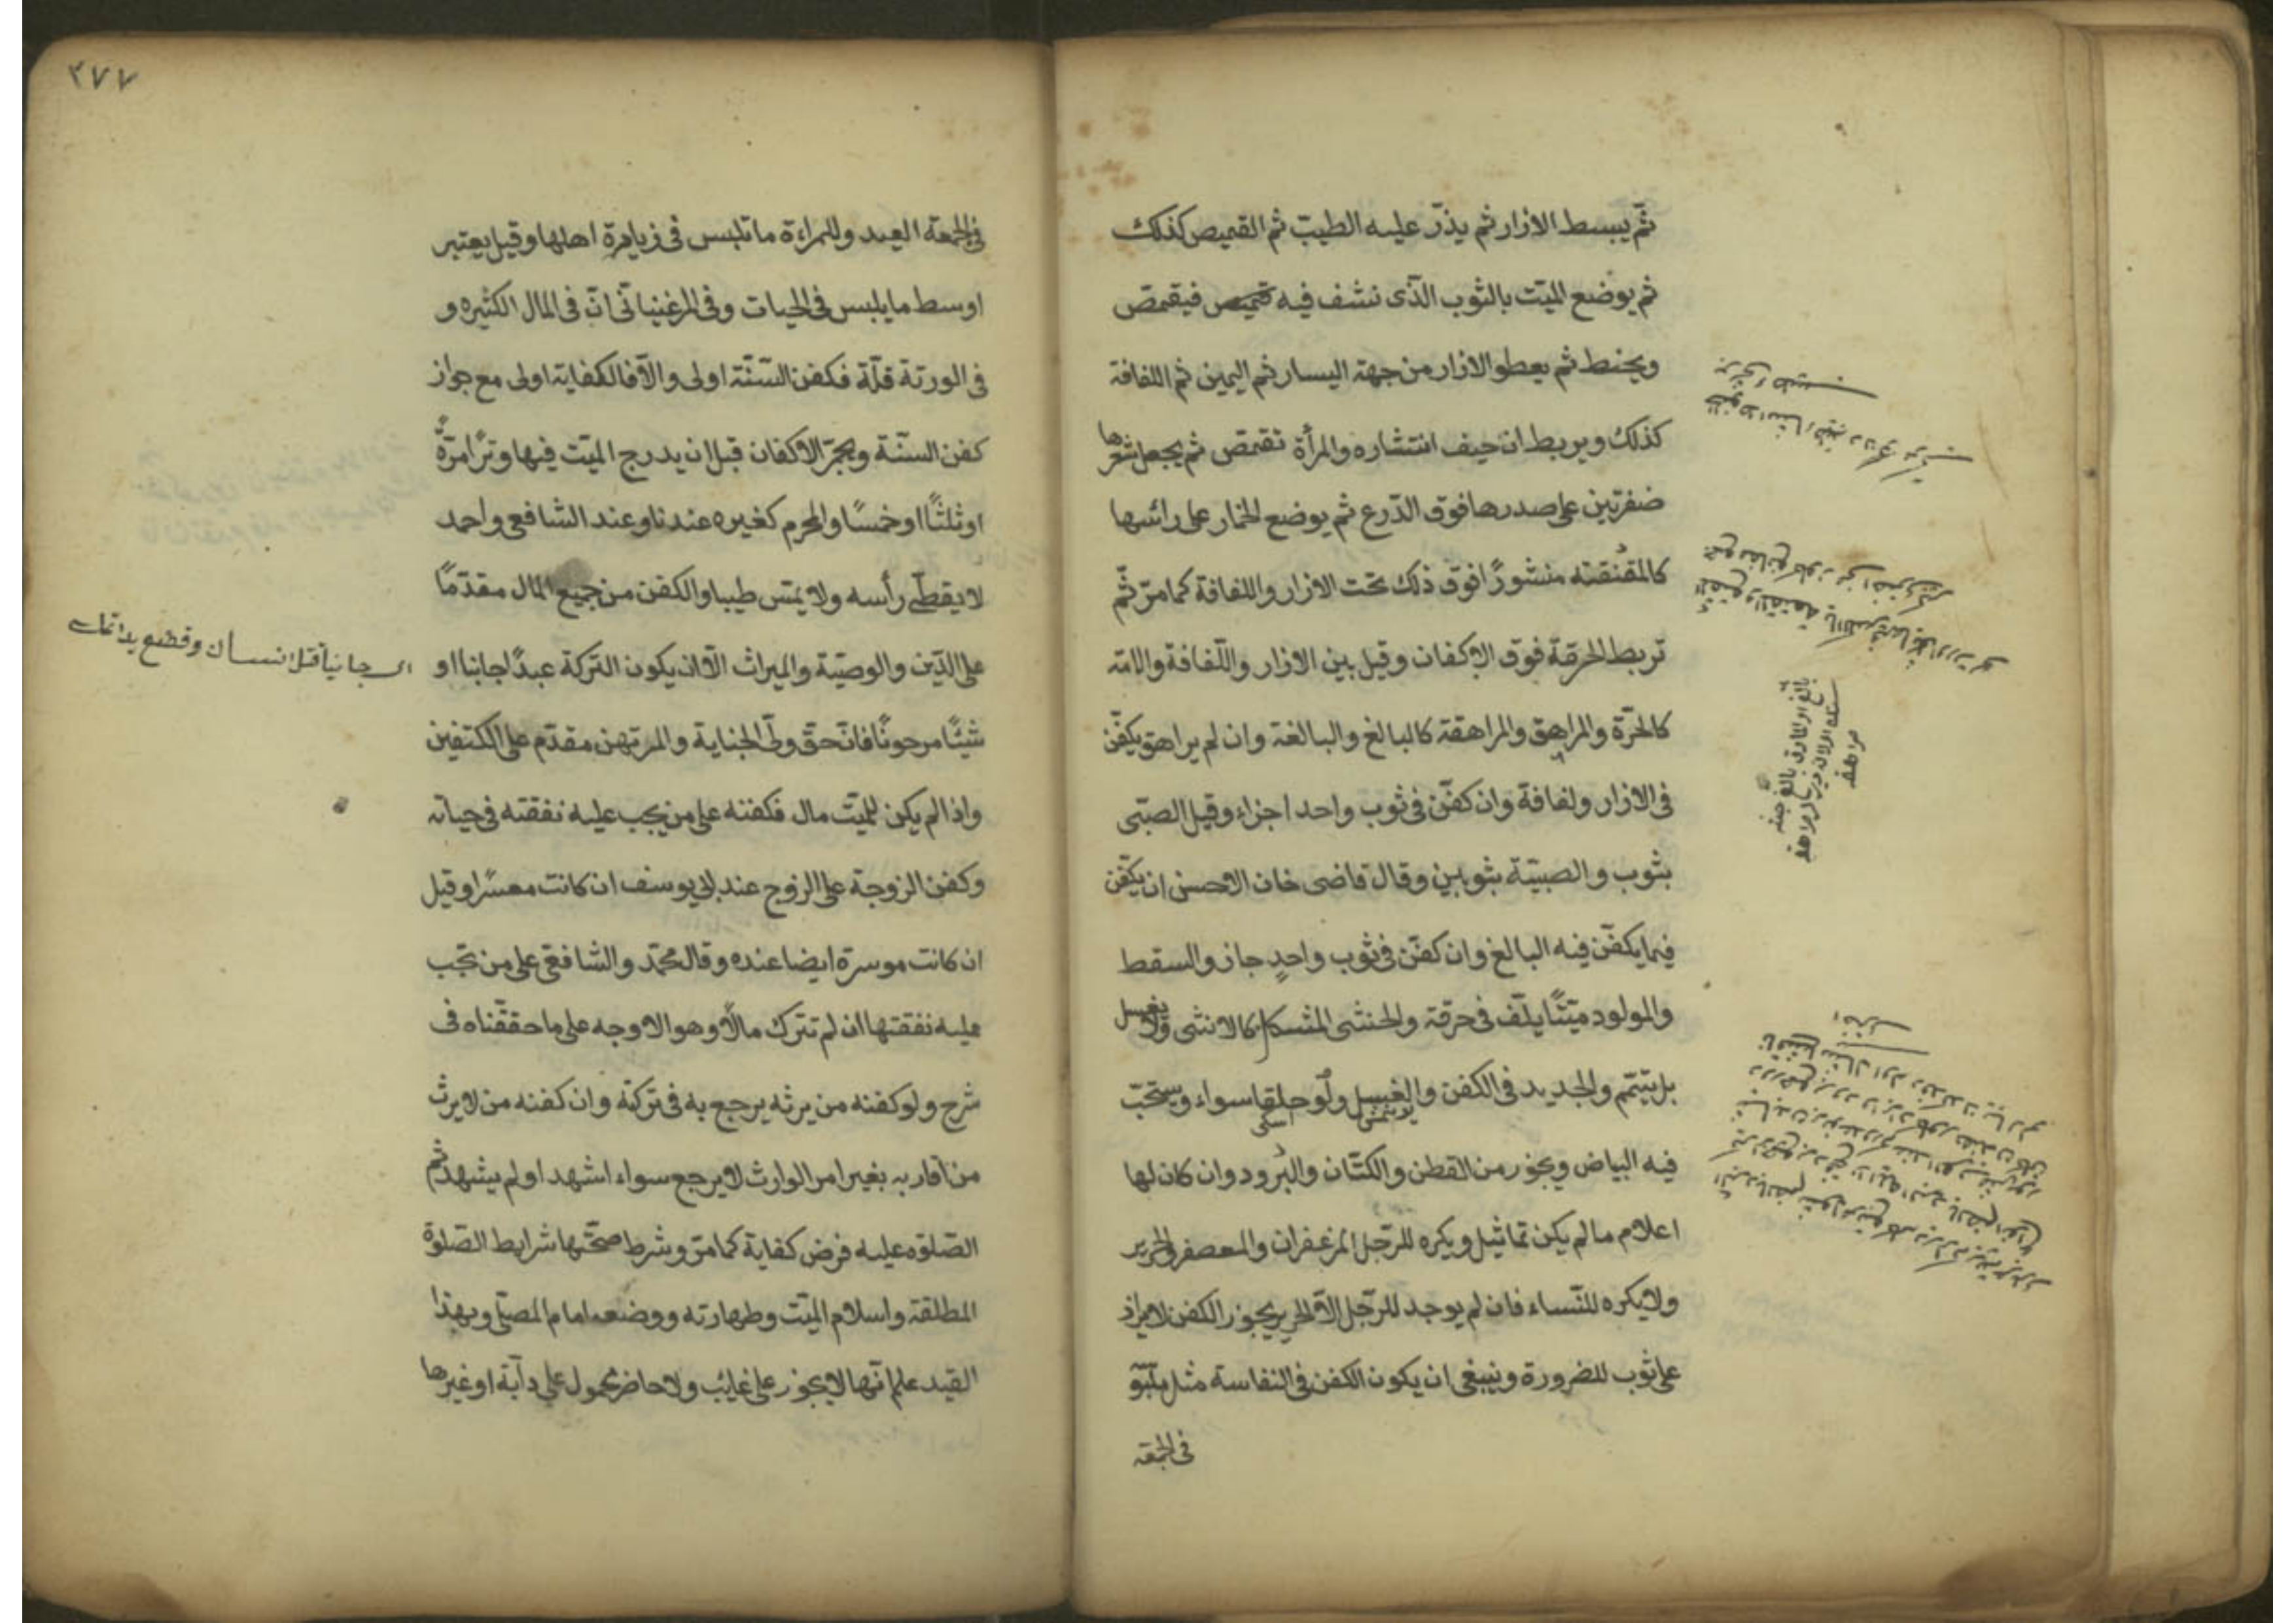 ثمّ يبسط الازار ثم يذرّ عليه الطيب ثم القميص كذلك
ثم يوضع الميّت بالثوب الذّى نشف فيه قميص فيقمّص
ويحنط ثم يعطو الازار من جهة اليسار ثم اليمين ثم اللفافة
كذلك ويربط ان خيف انتشاره والمرأة تقمّص ثم يجعل شعرها
ضفرتين على صدرها فوق الدّرع ثم يوضع الخمار على رائسها
كالمقنقته منشورًا فوق ذلك تحت الازار واللفافة كما مرّ ثمّ
تربط الخرقة فوق الاكفان وقيل بين الازار واللّفافة والامة
كالحرّة والمراهق والمراهقة كالبالغ والبالغة وان لم يراهق يكفّن
فى الازار ولفافة وان كفّن فى ثوب واحد اجزاء وقيل الصبّى
بثوب والصبيّة بثوبين وقال قاضى خان الاحسن ان يكفّن
فيما يكفّن فيه البالغ وان كفّن فى ثوب واحدٍ جاز والسقط
والمولود ميّتًا يلّف فى خرقة والخنشى المشكل كالانثى ولا يغسل
بل يتيّم والجديد فى الكفن والغسيل ولو خلقا سواء ويستحبّ
فيه البياض ويجوز من القطن والكتّان والبُرود وان كان لها
اعلام ما لم يكن تماثيل ويكره للرّجل المزعفران والمعصفر والحرير
ولا يكره للنّساء فان لم يوجد للرّجل الّا الحرير يجوز الكفن لا يزاد
على ثوب للضرورة وينبغى ان يكون الكفن فى النفاسة مثل ملبو
فى الجمعة
٢٧٧
فى الجمعة العيد وللمراءة ما تلبس فى زيارة اهلها وقيل يعتبر
اوسط ما يلبس فى الحيات وفى المرغينانّى انّ فى المال الكثيره و
فى الورثة قلّة فكفن السّنّة اولى والّا فالكفاية اولى مع جواز
كفن السنّة ويجمّر الاكفان قبل ان يدرج الميّت فيها وترًا مرّةً
او ثلثًا او خمسًا والمحرم كغيره عندنا وعند الشافعى واحمد
لا يغطّى رأسه ولا يمّس طيبا والكفن من جميع المال مقدّمًا
على الدّين والوصيّة والميراث الّا ان يكون التركة عبدًا جانبا او
اى جانياً قتل انسان وقطع يدا
شيئًا مرهونًا فانّ حقّ ولّى الجناية والمرتهن مقدّم على الكتفين
واذا لم يكن للميّت مال فكفنه على من يجب عليه نفقته فى حياته
وكفن الزوجة على الزوج عند ابى يوسف ان كانت معسرًا وقيل
ان كانت موسرة ايضا عنده وقال محمّد والشافعى على من تجب
عليه نفقتها ان لم تترك مالًا وهو الاوجه على ما حققّناه فى
شرح ولو كفنه من يرثه يرجع به فى تركته وان كفنه من لا يرث
من اقاربه بغير امر الوارث لا يرجع سواء اشهد او لم يشهد ثم
الصّلوة عليه فرض كفاية كما مرّ وشرط صحّتها شرايط الصّلوة
المطلقة واسلام الميّت وطهارته ووضعه امام المصلّى وبهذا
القيد علم انّها لا يجوز على غايب ولا حاضر محمول على دآبة او غيرها